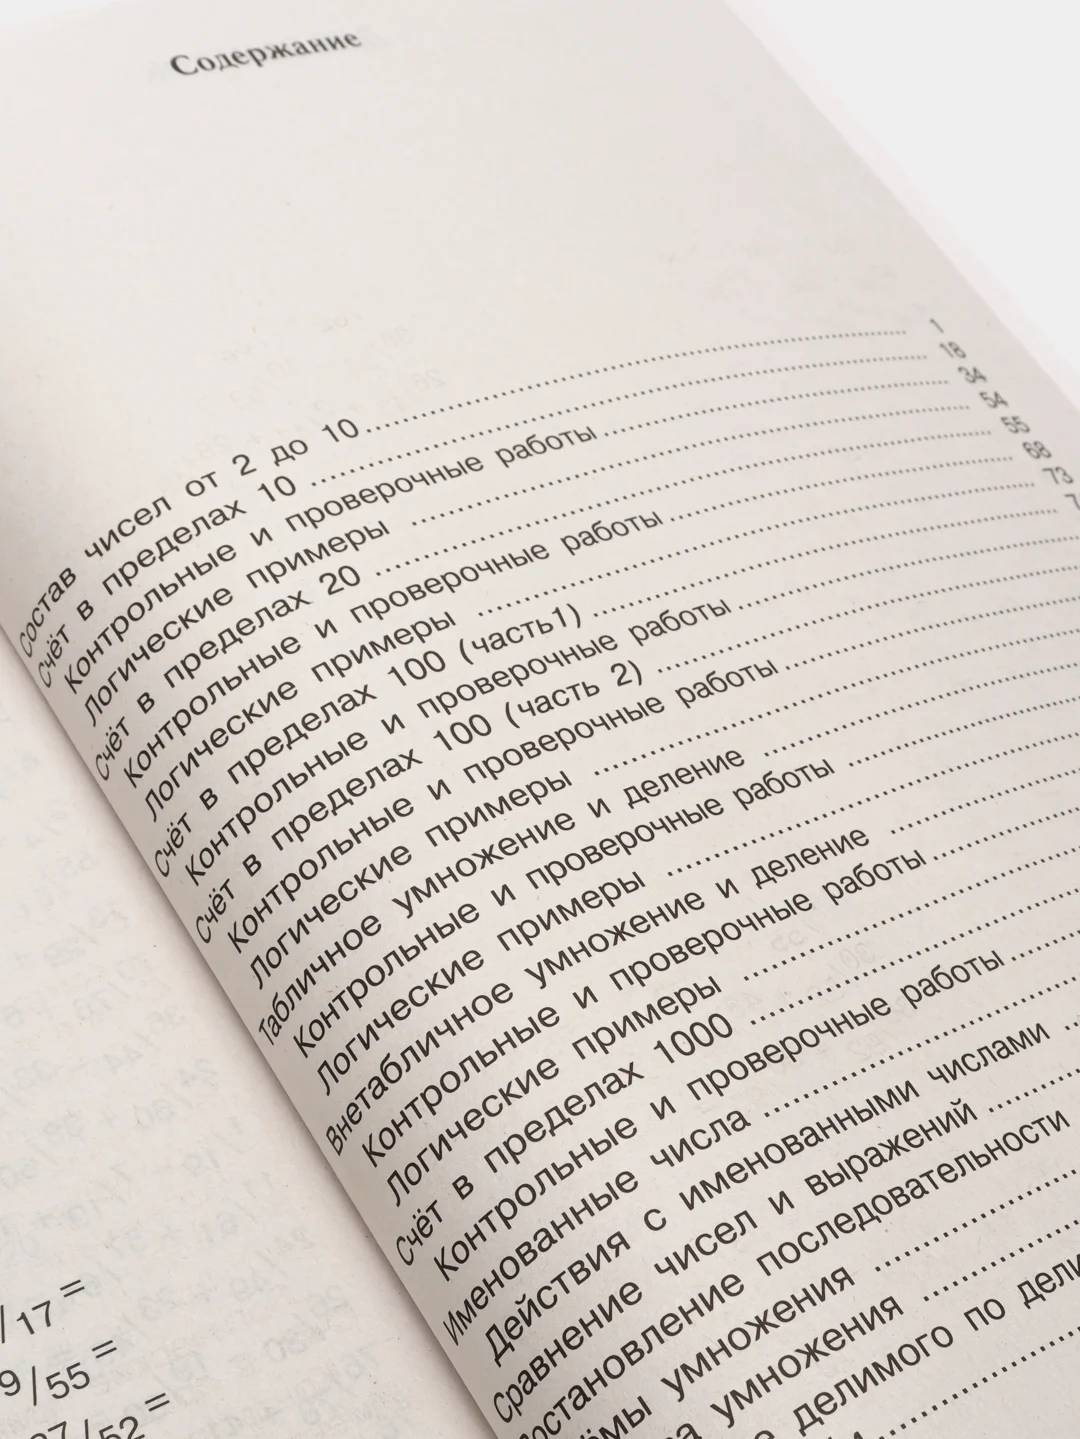 Содержание
Состав чисел от 2 до 10 ........ 1
Счёт в пределах 10 ........ 18
Контрольные и проверочные работы ........ 34
Логические примеры ........ 54
Счёт в пределах 20 ........ 55
Контрольные и проверочные работы ........ 68
Логические примеры ........ 73
Счёт в пределах 100 (часть1) ........ 7
Контрольные и проверочные работы ........
Счёт в пределах 100 (часть 2) ........
Контрольные и проверочные работы ........
Логические примеры ........
Табличное умножение и деление ........
Контрольные и проверочные работы ........
Логические примеры ........
Внетабличное умножение и деление ........
Контрольные и проверочные работы ........
Логические примеры ........
Счёт в пределах 1000 ........
Контрольные и проверочные работы ........
Именованные числа ........
Действия с именованными числами ...
Сравнение чисел и выражений ........
последовательности
ёмы умножения ........
а умножения ........
е делимого по дели
/17 =
9/55 =
37/52 =